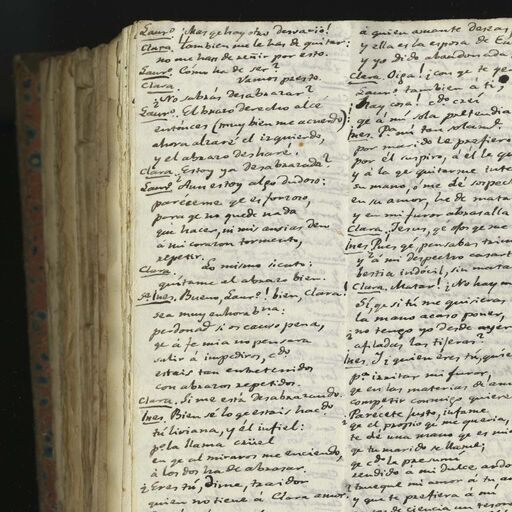 Laurº ¡Mas q̃ hay otro desvarío!
Clara. tambien me le has de quitar:
no me has de reñir por esto.
Laurº. Como ha de ser?
Clara. Vamos presto.
¿No sabrás desabrazar?
Laurº. El brazo derecho alcé
entonces (muy bien me acuerdo):
ahora alzaré el izquierdo,
y el abrazo desharé.
Clara. Estoy ya desabrazada?
Laurº. Aun estoy algo dudoso:
paréceme q̃e es forzoso,
para q̃e no quede nada
que hacer, ni mis ansias den
á mi corazon tormento,
repetir.
Clara. Lo mismo siento:
quítame el abrazo bien.
Sª Ines. Bueno, Laurº! bien, Clara!
sea muy enhorabna:
perdonad si os causo pena,
q̃e á fe mia no pensara
salir á impediros, cdo
estais tan entretenidos
con abrazos repetidos.
Clara. Si me está desabrazando.
Ines. Bien sé lo q̃e estais hacdo
tú liviana, y él infiel:
pr la llama cruel
en q̃e al miraros me enciendo,
á los dos ha de abrasar.
¿Eres tú, dime, traidor
quien no tiene á Clara amor,
á quien amante deseas,
y ella es la esposa de
y yo dido abandonada
Clara. Oiga! ¿con q̃e te q̃
Laurº tambien á ti,
hay cosa! cdo creí
q̃e á mí sola pretendia
Ines. Pr mí tan solamte
por marido le prefiero
por él suspiro, á él le q
y á la q̃e quitarme inte
su mano, ó me dé sospec
en su amor, he de mata
y en mi furor abrasalla
Clara. Jesus, q̃e
Ines Pues q̃e, pensabas
y á mi despecho casart
bestia indócil, sin mata
Clara. Matar! ¿No hay
Sí, q̃e si tú me quisieras
la mano acaso poner,
¿no tengo yo desde ayer
afiladas las tijeras?
Ines. I ¿quien eres tú, quie
pa irritar mi furor,
q̃e en las materias de am
competir conmigo quiere
Parecete justo, infame
q̃e el propio q̃e me queria,
te dé una mano q̃e es mi
q̃e tu marido se llame;
q̃e cdo le presumí
rendido á mi dulce ardo
trueque mi amor á tu a
y que te prefiera á mí